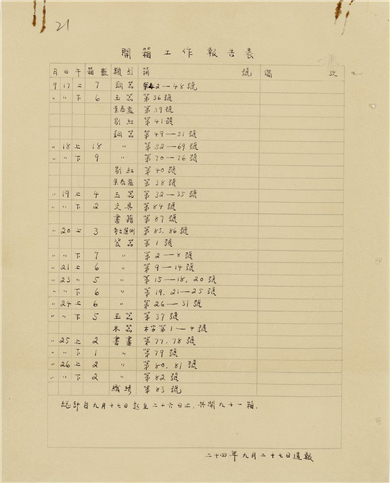 21
開箱工作報告表
月 日 午 箱數 類別 箱 號 備 攷
9 17 上 7 銅器 第42—48號
〃 〃 下 6 玉器 第36號
第39號
剔紅 第41號
銅器 第49—51號
〃 18 上 18 〃 第52—69號
〃 〃 下 9 〃 第70—76號
剔紅 第40號
第38號
〃 19 上 4 玉器 第32—35號
〃 〃 下 2 文具 第84號
書籍 第87號
〃 20 上 3 第85, 86號
瓷器 第1號
〃 〃 下 7 〃 第2—8號
〃 21 上 6 〃 第9—14號
〃 23 上 5 〃 第15—18, 20號
〃 〃 下 6 〃 第19, 21—25號
〃 24 上 6 〃 第26—31號
〃 〃 下 5 玉器 第37號
木器 木字第1—4號
〃 25 上 2 書畫 第77, 78號
〃 〃 下 1 〃 第79號
〃 26 上 2 〃 第80, 81號
〃 〃 下 2 〃 第82號
第83號
總計自九月十七日起至二十六日止，共開九十一箱。
二十四年九月二十七日造報